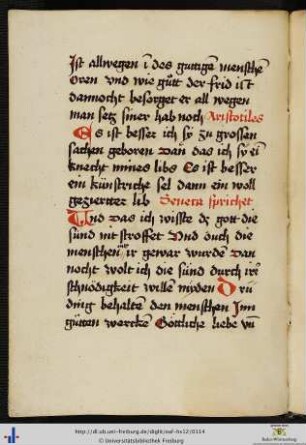 Ist allwegen i des guttigē mensche
oren vnd wie gůtt der frid ist
dannocht besorget er all wegen
man setz siner hab noch Aristotiles
Es ist besser ich sÿ zu grossen
sachen geboren Dan das ich sÿ ei
knecht mines libs Es ist besser
ein künstriche sel dann ein woll
gezierter lib Seneca sprichet
Und das ich wisste dz gott die
sünd nit stroffet Vnd ouch die
menschen ir gewar wurden Dan
nocht wolt ich die sünd durch iri
schnödigkeit willē myden Drü
ding behalten den menschen Inn
gütten wercken Göttliche liebe vn̄
http://dl.ub.uni-freiburg.de/diglit/suf-hs12/0114
© Universitätsbibliothek Freiburg
Baden-Württemberg